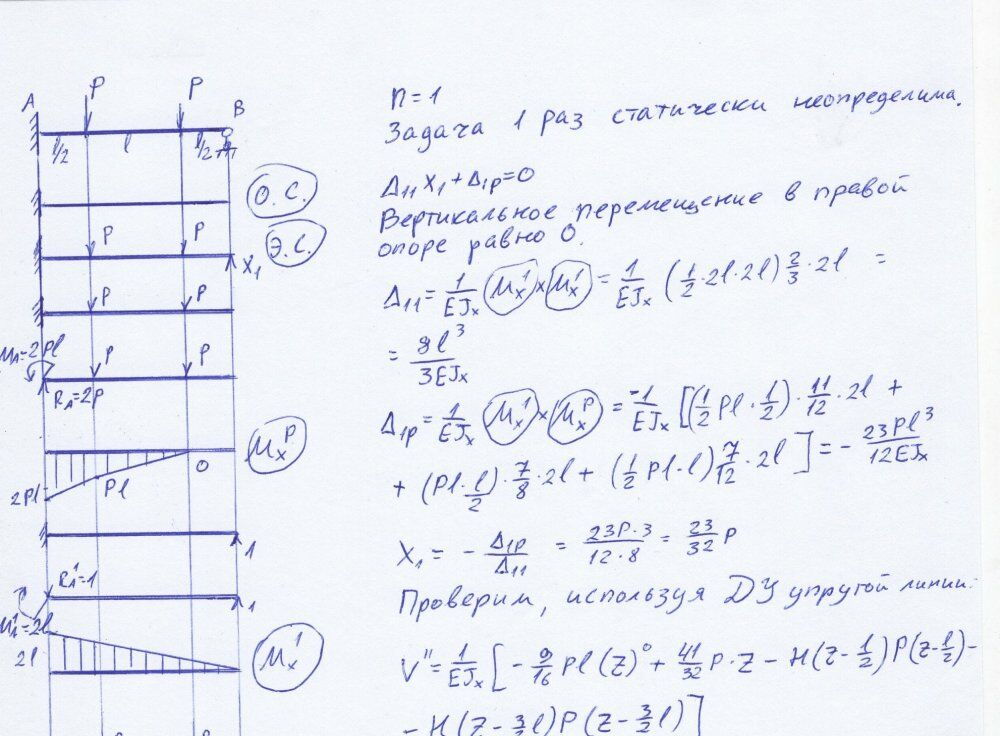 P P
A B
l/2 l l/2
О.С.
P P
Э.С.
X₁
P P
M_A=2Pl
R_A=2P
M_x^P
O
Pl
2Pl
1
R_A^1=1
1
M_A^1=2l
2l
M_x^1
n=1
Задача 1 раз статически неопределима.
Δ₁₁X₁+Δ₁p=0
Вертикальное перемещение в правой
опоре равно 0.
Δ₁₁ = 1/EJx (M_x^1)×(M_x^1) = 1/EJx (1/2·2l·2l) 2/3·2l =
= 8l³/3EJx
Δ₁p = 1/EJx (M_x^1)×(M_x^P) = -1/EJx [(1/2 Pl·1/2)·11/12·2l +
+ (Pl·l/2)·7/8·2l + (1/2 Pl·l) 7/12·2l] = - 23Pl³/12EJx
X₁ = - Δ₁p/Δ₁₁ = 23P·3/12·8 = 23/32 P
Проверим, используя ДУ упругой линии:
V″ = 1/EJx [- 9/16 Pl(z)⁰ + 41/32 P·z - H(z-l/2)P(z-l/2)-
- H(z-3/2 l)P(z-3/2 l)]